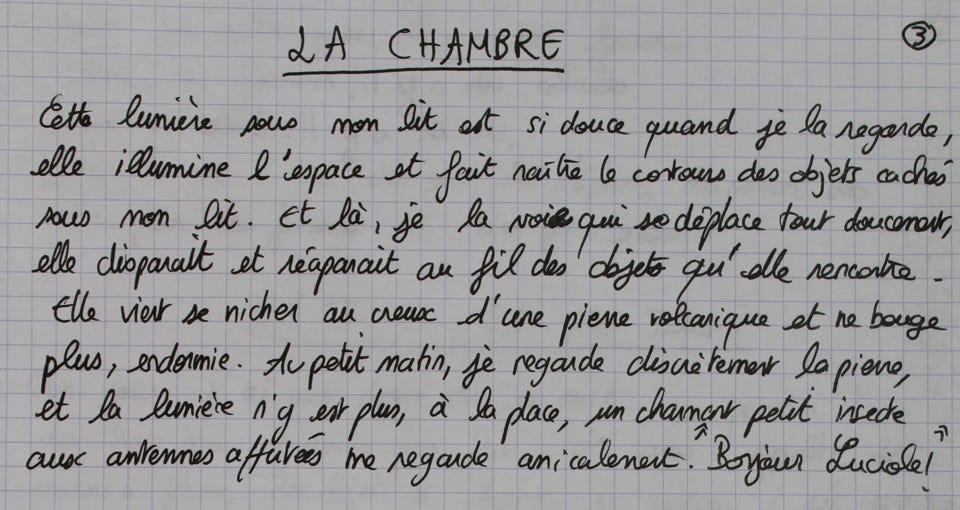 LA CHAMBRE
3
Cette lumière sous mon lit est si douce quand je la regarde,
elle illumine l'espace et fait naître le contours des objets cachés
sous mon lit. Et là, je la vois qui se déplace tout doucement,
elle disparaît et réaparait au fil des objets qu'elle rencontre.
Elle vient se nicher au creux d'une pierre volcanique et ne bouge
plus, endormie. Au petit matin, je regarde discrètement la pierre,
et la lumière n'y est plus, à la place, un charmant petit insecte
aux antennes affutées me regarde amicalement. "Bonjour Luciole!"